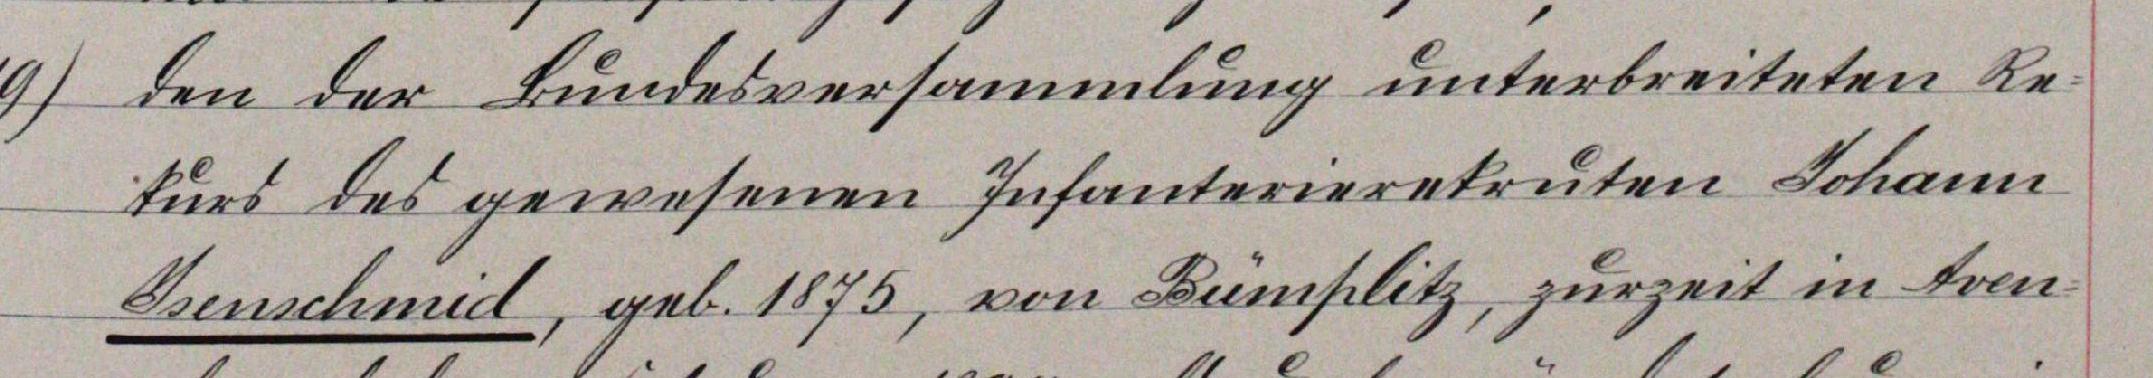 9) den der Bundesversammlung unterbreiteten Re-
kurs des gewesenen Infanterierekruten Johann
Isenschmid, geb. 1875, von Bümplitz, zurzeit in Aven-